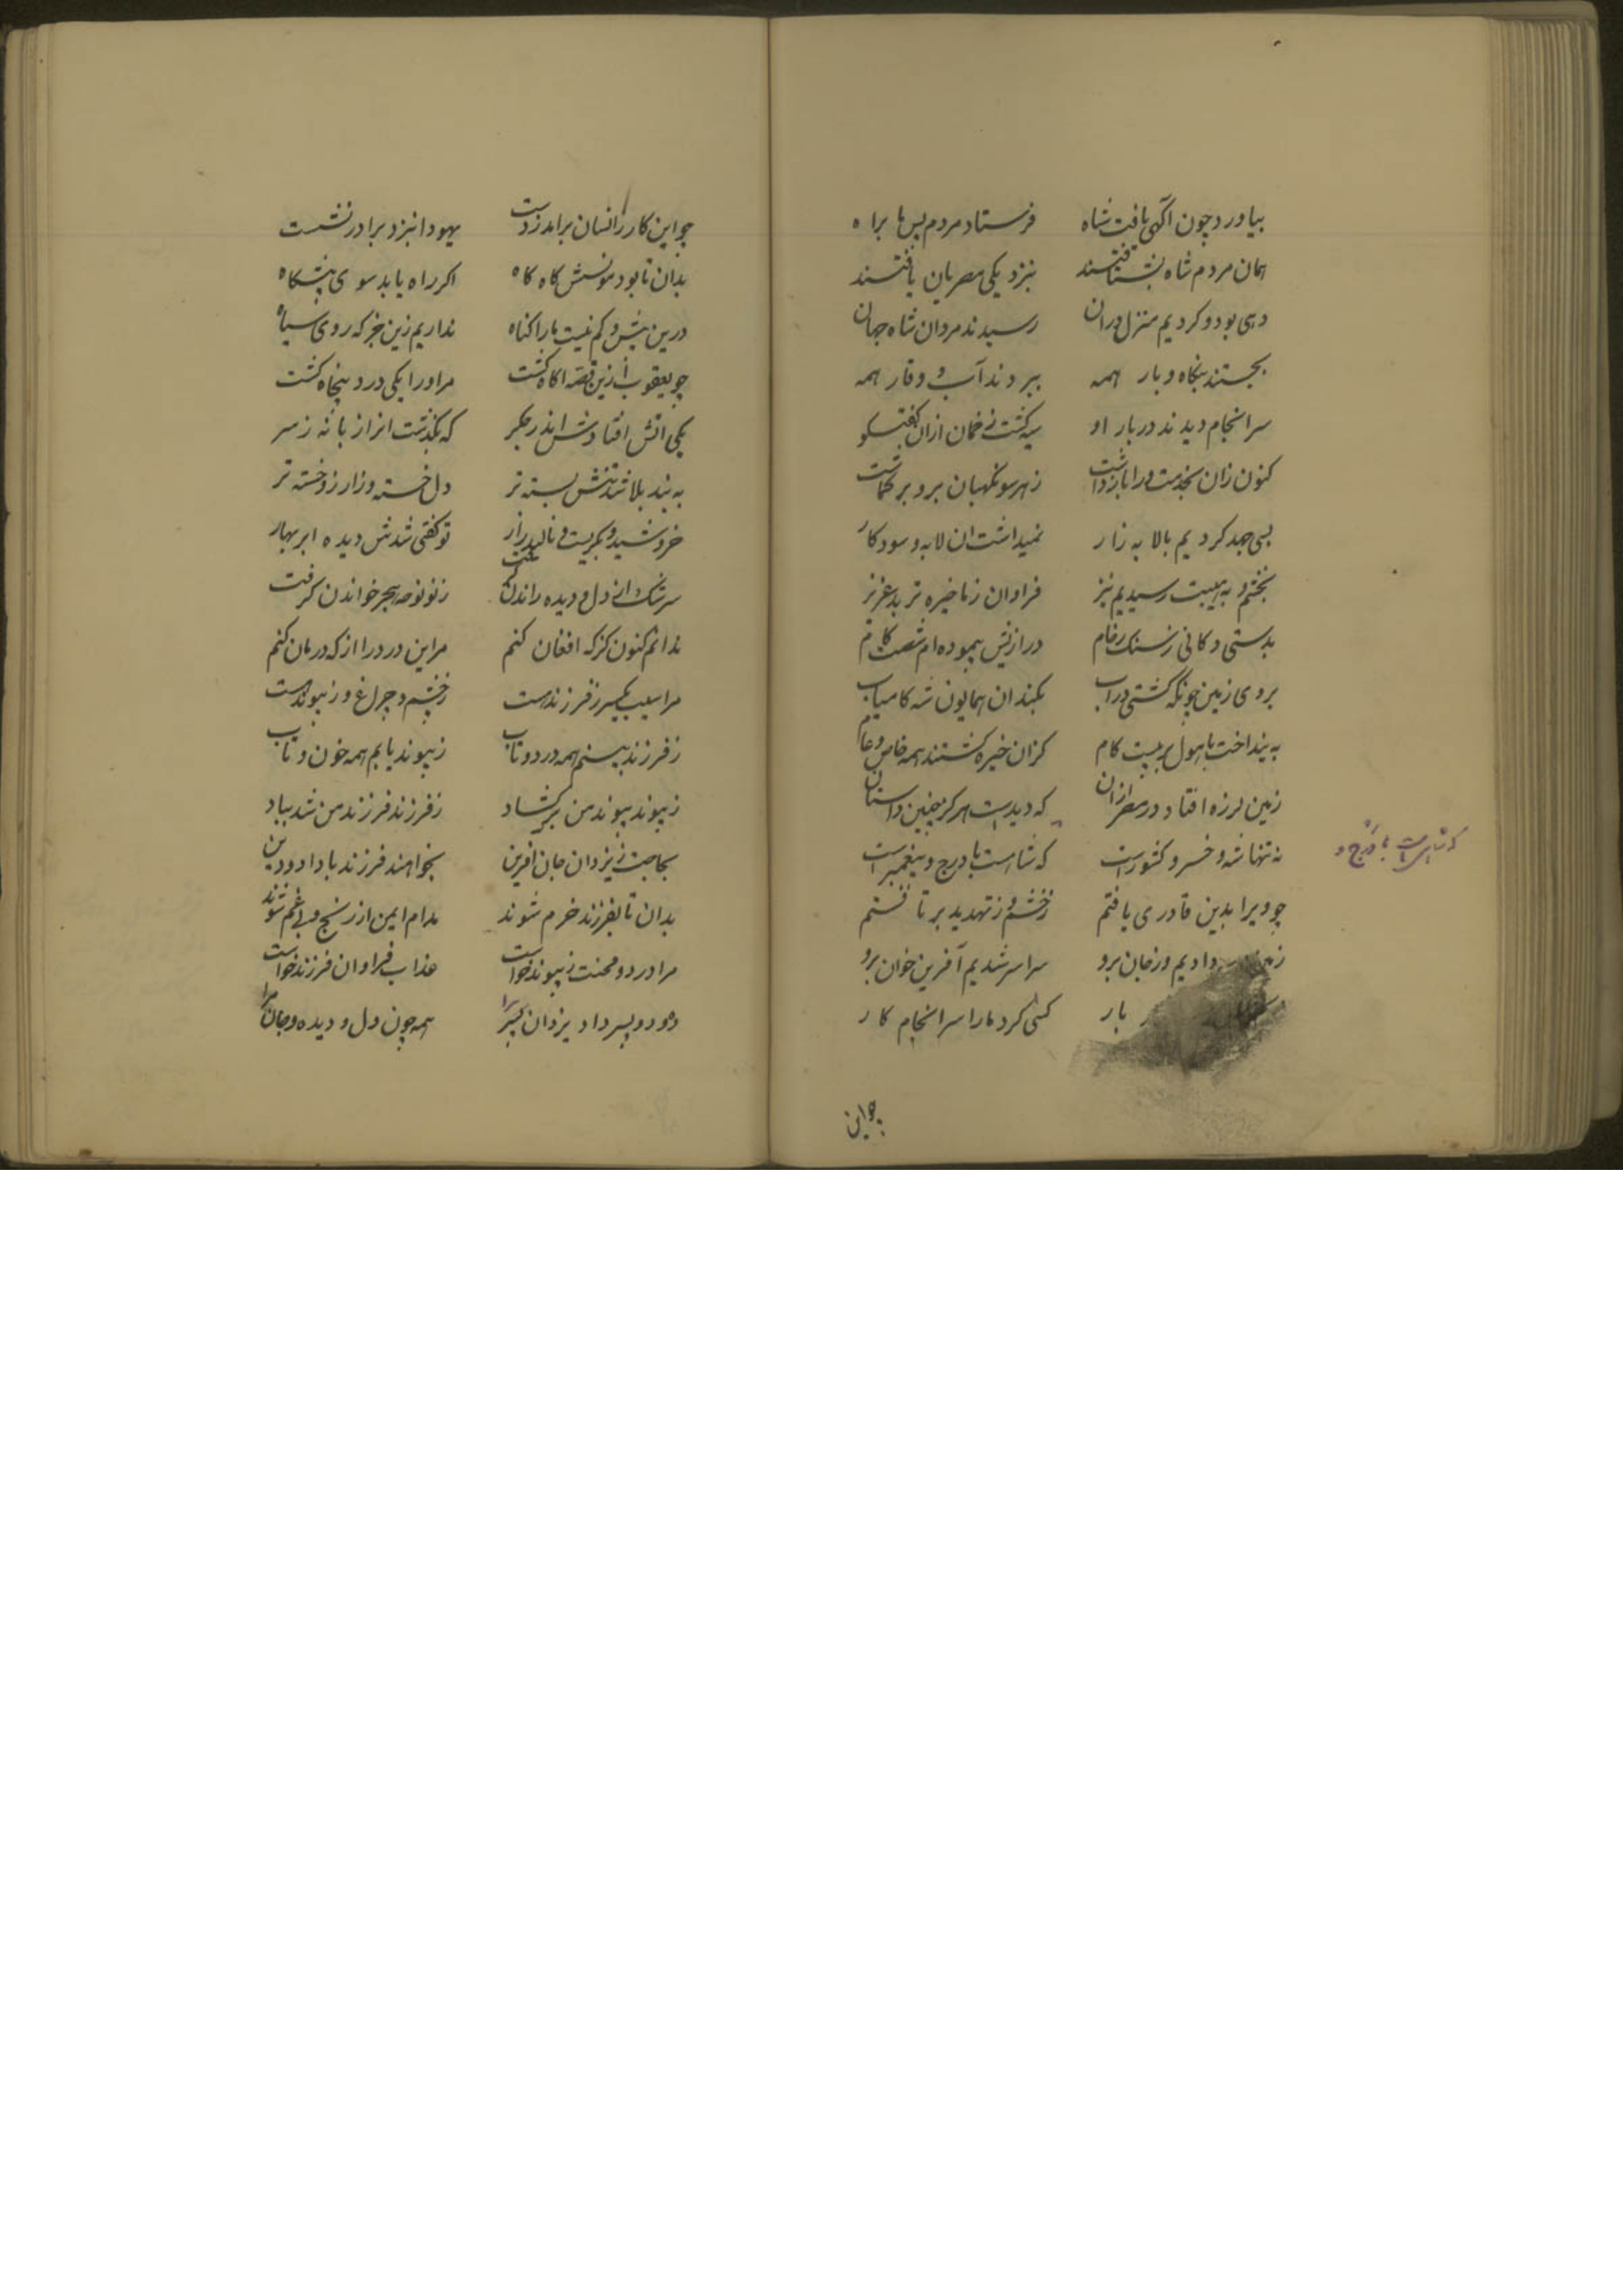 بیاورد چون آگهی یافت شاه فرستاد مردم پس ما براه
همان مردم شاه بشتافتند بنزدیکی مصرمان یافتند
دهی بود و کردیم منزل دران رسیدند مردان شاه جهان
بجستند بنگاه و بار همه ببردند آب و وقار همه
سرانجام دیدند در بار او سیه گشت زخمان ازان گفتگو
کنون زان بخدمت ورا بازداشت زهر سو نگهبان برو بر گماشت
بسی جهد کردیم بالا به زار نمیداشت ان لابه و سود کار
بخشم و به هیبت رسیدیم نیز فراوان زما خیره تر بد عزیز
بدستی دکانی زسنک رخام درازیش پیموده ام شصت کام
بروی زمین چونکه کشتی دراب بکند ان همایون شه کامیاب
به بینداخت با هول بر بیست کام کزان خیره گشتند همه خاص و عام
زمین لرزه افتاد در مصر ازان که دیدست هرکز چنین داستان
نه تنها شه و خسرو کشورست که شاهست با درج و پیغمبرست
که شاهست با درج و
چو ویرا بدین قادری یافتم زخشم و زتهدید برتافتم
دادیم و زجان برو سراسر شدیم آفرین خوان برو
بار کسی کرد مارا سرانجام کار
چو این
چو این کار زانسان برامد زدست یهودا بنزد برادر نشست
بدان تا بود مونسش کاه کاه اکر راه یابد سوی پیشکاه
درین بیش و کم نیست مارا کناه نداریم زین جز که روی سیاه
چو یعقوب ازین قصه اکاه کشت مر او را یکی درد پنجاه کشت
یکی اتش افتادش اندر جکر که بکذشت انراز بانه زسر
به بند بلا شد تنش بسته تر دل خسته و زار زو خسته تر
خروشید و بکریست و نالید زار تو کفتی شدش دیده ابر بهار
سرشک از دل و دیده راندن کرفت زنو نوحه هجر خواندن کرفت
ندانم کنون کز که افغان کنم مر این درد را از که درمان کنم
مرا سیب یکسر زفرزندست زچشم و چراغ و زپیوندست
زفرزند بینم همه درد و تاب زپیوند یابم همه خون و تاب
زپیوند پیوند من بر کشاد زفرزند فرزند من شد بباد
بحاجت زیزدان جان افرین بخواهند فرزند با داد و دین
بدان تا بفرزند خرم شوند مدام ایمن از رنج و بی غم شوند
مرا درد و محنت زپیوند خواست عذاب فراوان فرزند خواست
ده و دو پسر داد یزدان مرا همه چون دل و دیده و جان مرا